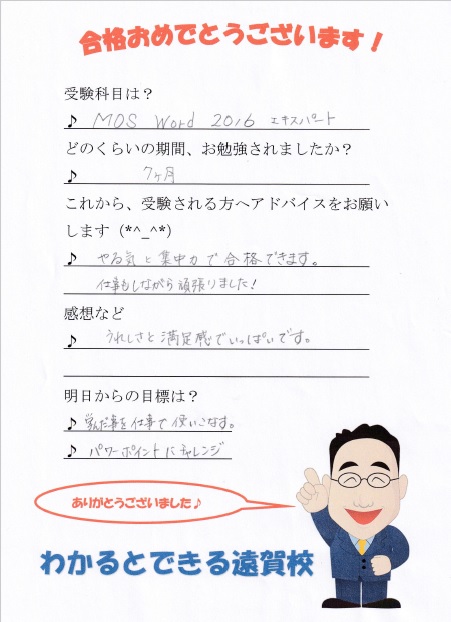 合格おめでとうございます！
受験科目は？
♪ MOS Word 2016 エキスパート
どのくらいの期間、お勉強されましたか？
♪ 7ヶ月
これから、受験される方へアドバイスをお願い
します (*^_^*)
♪ やる気と集中力で合格できます。
仕事もしながら頑張りました！
感想など
♪ うれしさと満足感でいっぱいです。
明日からの目標は？
♪ 学んだ事を仕事で使いこなす。
♪ パワーポイントにチャレンジ
ありがとうございました♪
わかるとできる遠賀校